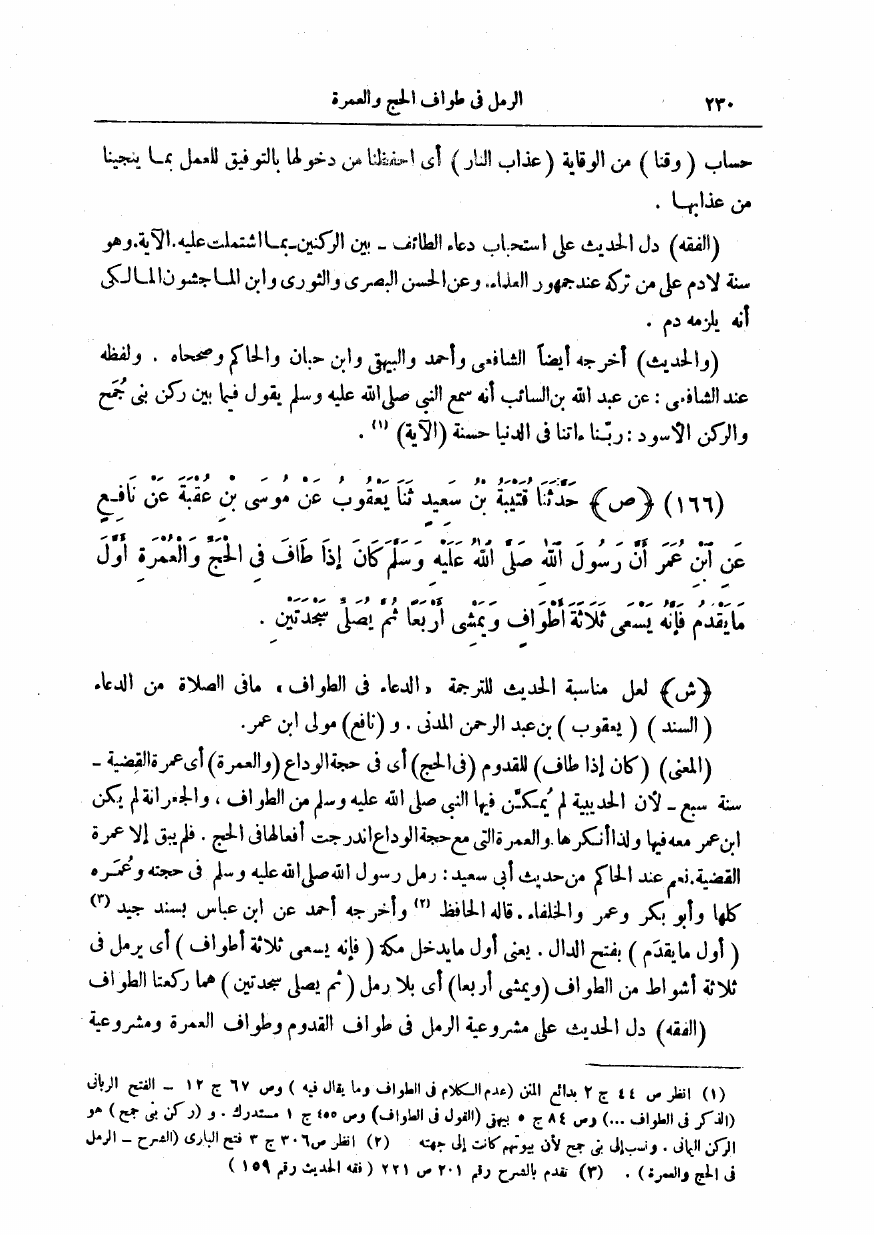 ٢٣٠ الرمل فى طواف الحج والعمرة
حساب ( وقنا ) من الوقاية ( عذاب النار ) أى احفظنا من دخولها بالتوفيق للعمل بما ينجينا
من عذابها .
(الفقه) دل الحديث على استحباب دعاء الطائف – بين الركنين–بما اشتملت عليه.الآية.وهو
سنة لادم على من تركه عند جمهور العلماء. وعن الحسن البصرى والثورى وابن الماجشون المالكى
أنه يلزمه دم .
(والحديث) أخرجه أيضاً الشافعى وأحمد والبيهقى وابن حبان والحاكم وصححاه . ولفظه
عند الشافعى : عن عبد الله بن السائب أنه سمع النبي صلى الله عليه وسلم يقول فيما بين ركن بنى جُمَح
والركن الأسود : ربّنا ءاتنا فى الدنيا حسنة (الآية) (١) .
(١٦٦) ﴿ص﴾ حَدَّثَنَا قُتَيْبَةُ بْنُ سَعِيدٍ ثَنَا يَعْقُوبُ عَنْ مُوسَى بْنِ عُقْبَةَ عَنْ نَافِعٍ
عَنِ ابْنِ عُمَرَ أَنَّ رَسُولَ اللهِ صَلَّى اللهُ عَلَيْهِ وَسَلَّمَ كَانَ إِذَا طَافَ فِى الْحَجِّ وَالْعُمْرَةِ أَوَّلَ
مَا يَقْدَمُ فَإِنَّهُ يَسْعَى ثَلَاثَةَ أَطْوَافٍ وَيَمْشِى أَرْبَعًا ثُمَّ يُصَلِّى سَجْدَتَيْنِ .
﴿ش﴾ لعل مناسبة الحديث للترجمة «الدعاء فى الطواف» مافى الصلاة من الدعاء
( السند ) ( يعقوب ) بن عبد الرحمن المدنى . و (نافع) مولى ابن عمر.
(المعنى) (كان إذا طاف) للقدوم (فى الحج) أى فى حجة الوداع (والعمرة) أى عمرة القضية –
سنة سبع – لأن الحديبية لم يُمَكَّن فيها النبي صلى الله عليه وسلم من الطواف ، والجعرانة لم يكن
ابن عمر معه فيها ولذا أنكرها. والعمرة التى مع حجة الوداع اندرجت أفعالها فى الحج . فلم يبق إلا عمرة
القضية.نعم عند الحاكم من حديث أبى سعيد : رمل رسول الله صلى الله عليه وسلم فى حجته وعُمَره
كلها وأبو بكر وعمر والخلفاء. قاله الحافظ (٢) وأخرجه أحمد عن ابن عباس بسند جيد (٣)
( أول ما يقدَم ) بفتح الدال . يعنى أول مايدخل مكة ( فإنه يسعى ثلاثة أطواف ) أى يرمل فى
ثلاثة أشواط من الطواف (ويمشى أربعا) أى بلا رمل ( ثم يصلى سجدتين ) هما ركعتا الطواف
(الفقه) دل الحديث على مشروعية الرمل فى طواف القدوم وطواف العمرة ومشروعية
(١) انظر ص ٤٤ ج ٢ بدائع المنن (عدم الكلام فى الطواف وما يقال فيه ) وص ٦٧ ج ١٢ – الفتح الربانى
(الذكر فى الطواف ...) وص ٨٤ ج ٥ بيهقى (القول فى الطواف) وص ٤٥٥ ج ١ مستدرك . و (ركن بنى جمح) هو
الركن اليمانى . ونسب إلى بنى جمح لأن بيوتهم كانت إلى جهته (٢) انظر ص ٣٠٦ ج ٣ فتح البارى (الشرح – الرمل
فى الحج والعمرة ) . (٣) تقدم بالشرح رقم ٢٠١ ص ٢٢١ ( فقه الحديث رقم ١٥٩ )